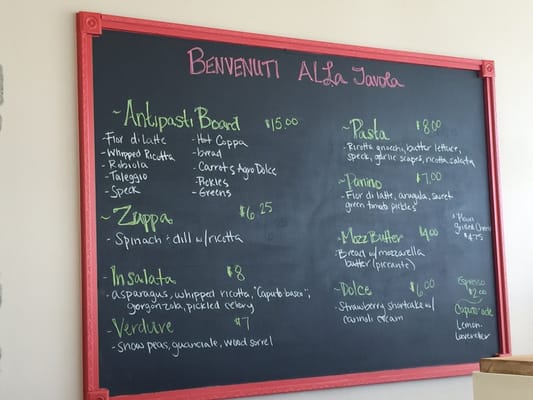 BENVENUTI ALLa Tavola
~Antipasti Board $15.00
-Fior di Latte
-Whipped Ricotta
-Robiola
-Taleggio
-Speck
-Hot Coppa
-bread
-Carrots Agro Dolce
-Pickles
-Greens
~Zuppa $6.25
-Spinach + dill w/ricotta
-Insalata $8
-asparagus, whipped ricotta, "Caputo basco",
gorgonzola, pickled celery
-Verdure $7
-snow peas, guanciale, wood sorrel
~Pasta $8.00
-Ricotta gnocchi, butter lettuce,
speck, garlic scapes, ricotta salata
~Panino $7.00
-Fior di latte, arugula, sweet
green tomato pickles
-Mozz Butter $4.00
-Bread w/mozzarella
butter (piccante)
-Dolce $6.00
-Strawberry shortcake w/
cannoli cream
*Plain
Grilled Cheese
$4.75
Espresso
$2.00
Caputo-ade
Lemon-
Lavender